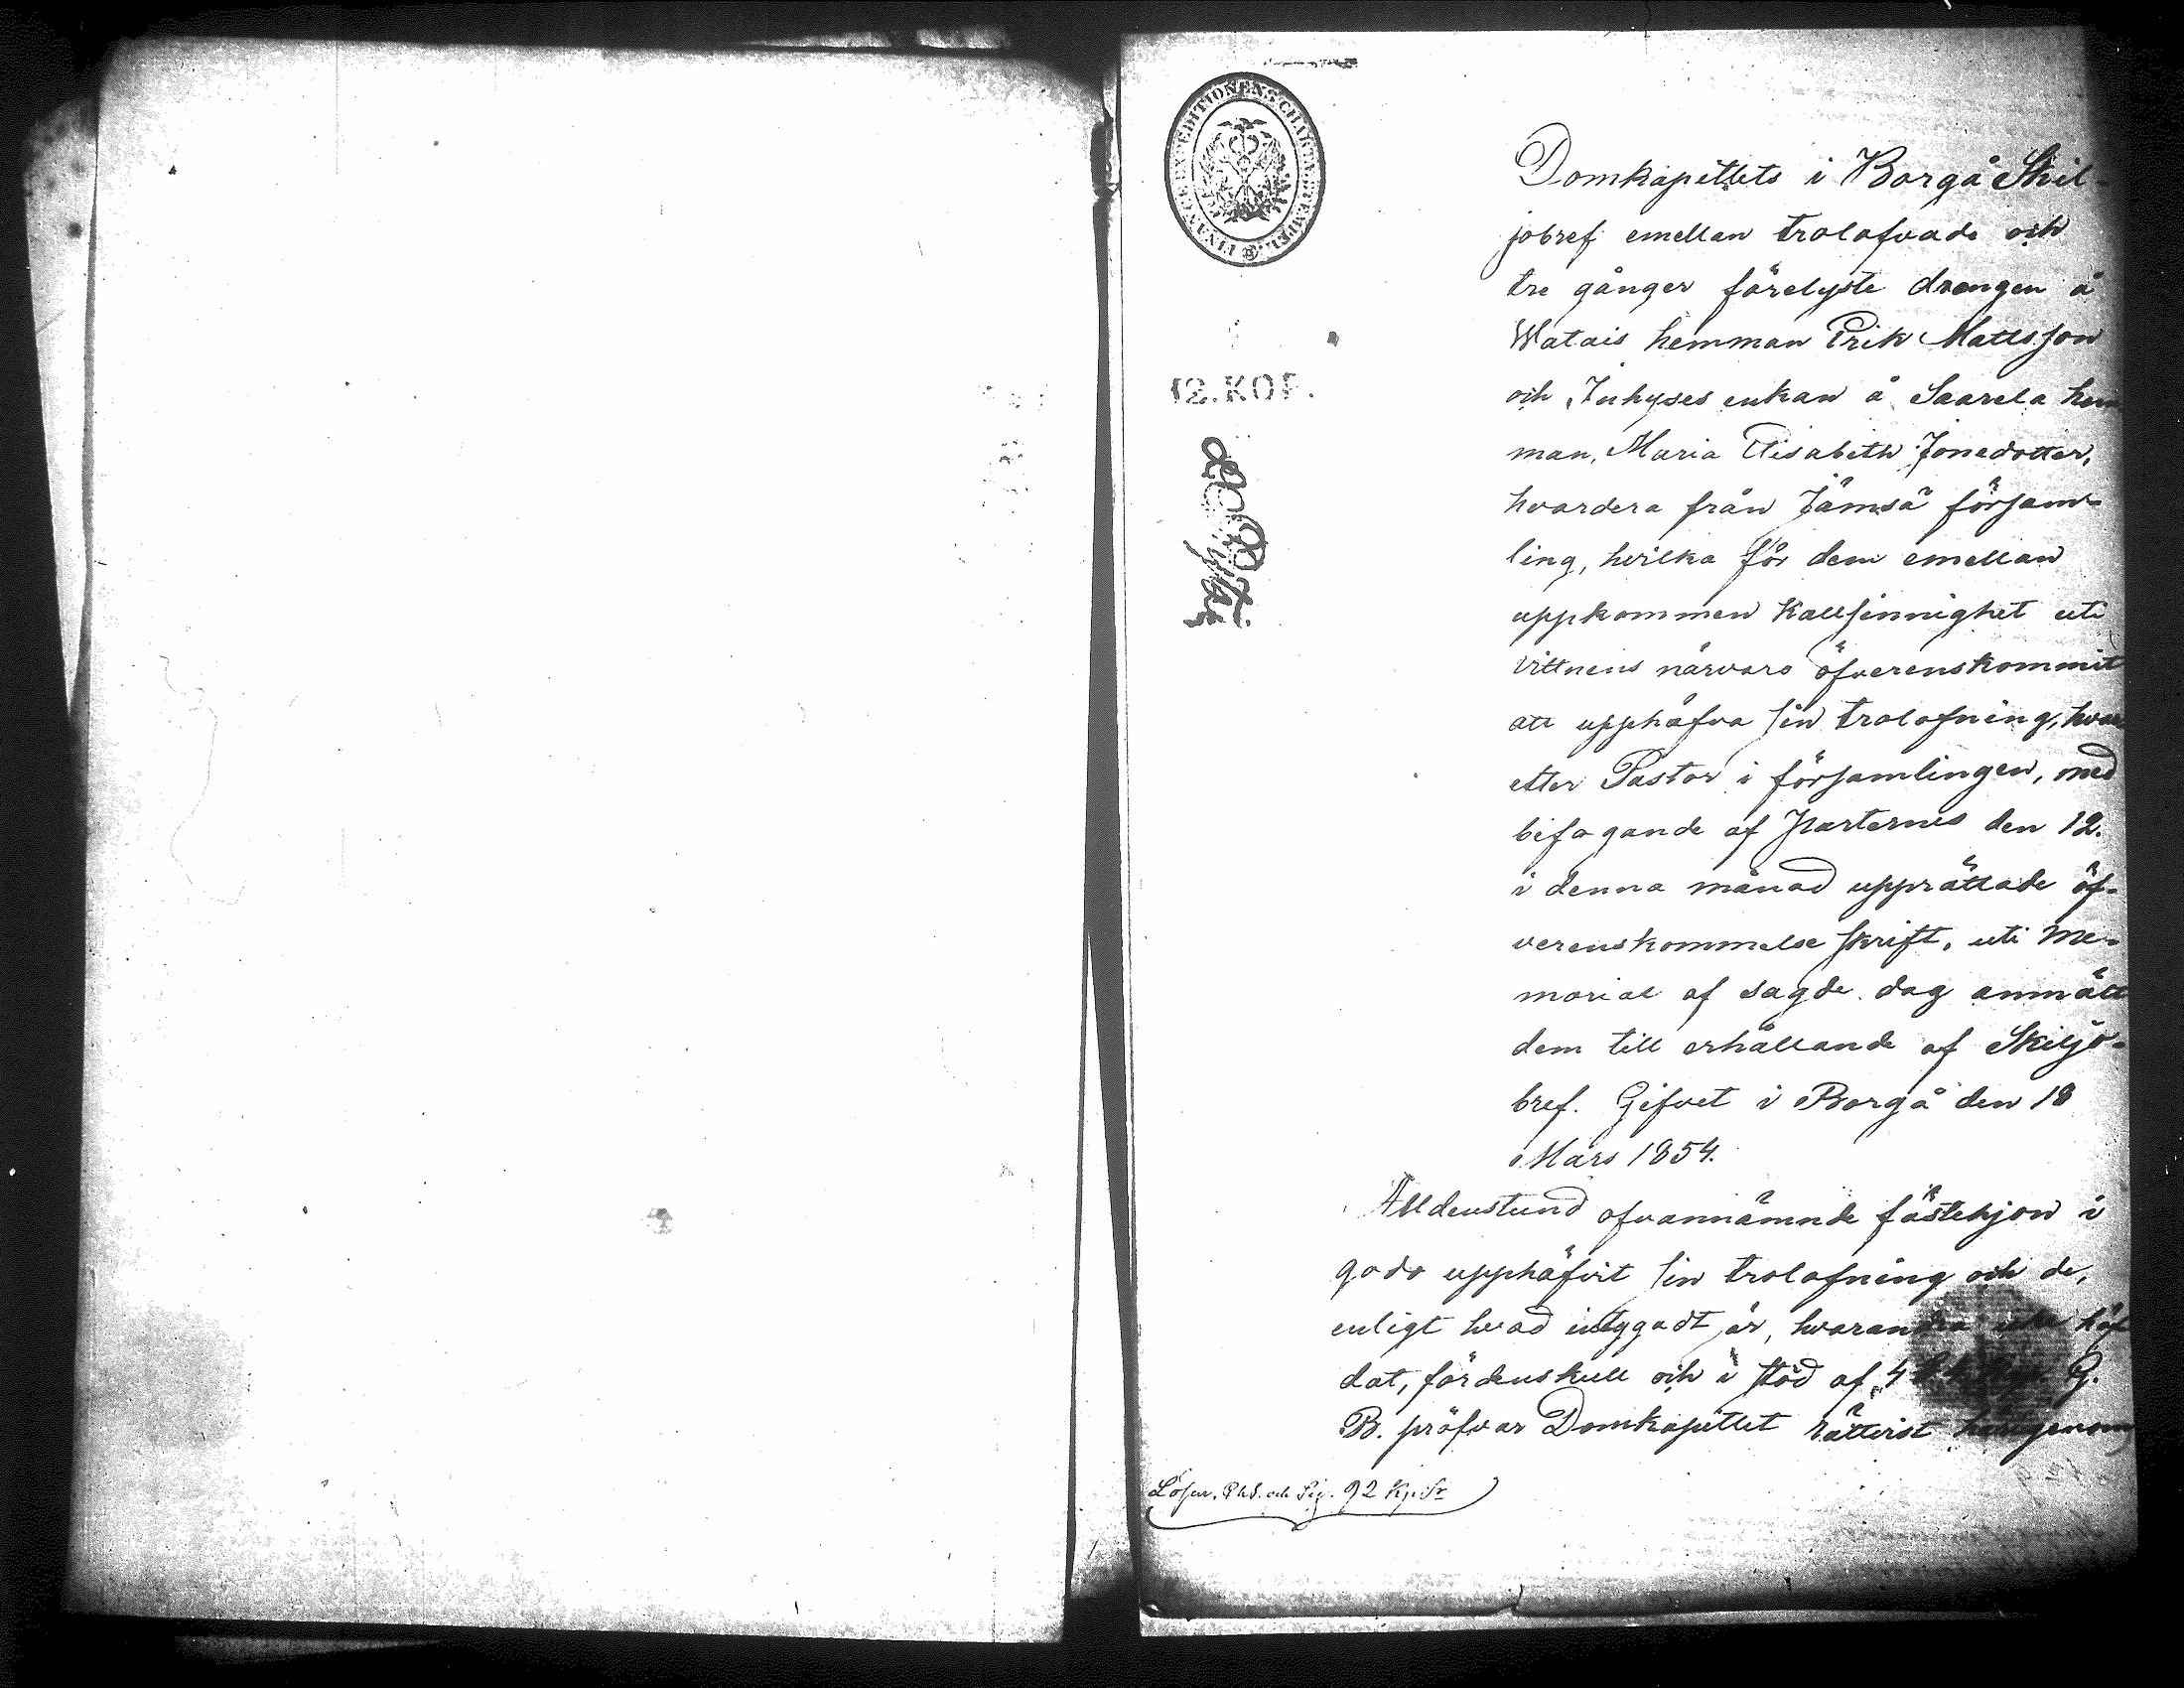 FINANCE EXPEDITIONENS CHARTÆ STEMPEL
12. KOP.
Domkapitlets i Borgå Skil-
jobref emellan trolofvade och
tre gånger förelyste drengen å
Watais hemman Erik Mattsson
och Inhyses enkan å Saarela hem
man, Maria Elisabeth Jonedotter,
hvardera från Jämsä försam-
ling, hvilka för dem emellan
uppkommen kallsinnighet uti
vittnens närvaro öfverenskommit
att upphäfva sin trolofning, hvar
efter Pastor i församlingen, med
bifogande af Parternes den 12.
i denna månad upprättade öf-
verenskommelse skrift, uti Me-
morial af sagde dag anmält
dem till erhållande af Skiljo-
bref. Gifvet i Borgå den 18
Mars 1854.
Alldenstund ofvannämnde fästehjon i
godo upphäfvit sin trolofning och de,
enligt hvad intygadt är, hvarandra icke häf
dat, fördenskull och i stöd af 4 G.
B. pröfvar Domkapitlet rättvist härigenom
Lösen, Ph.S. och Sig. 92 Kp. Sr